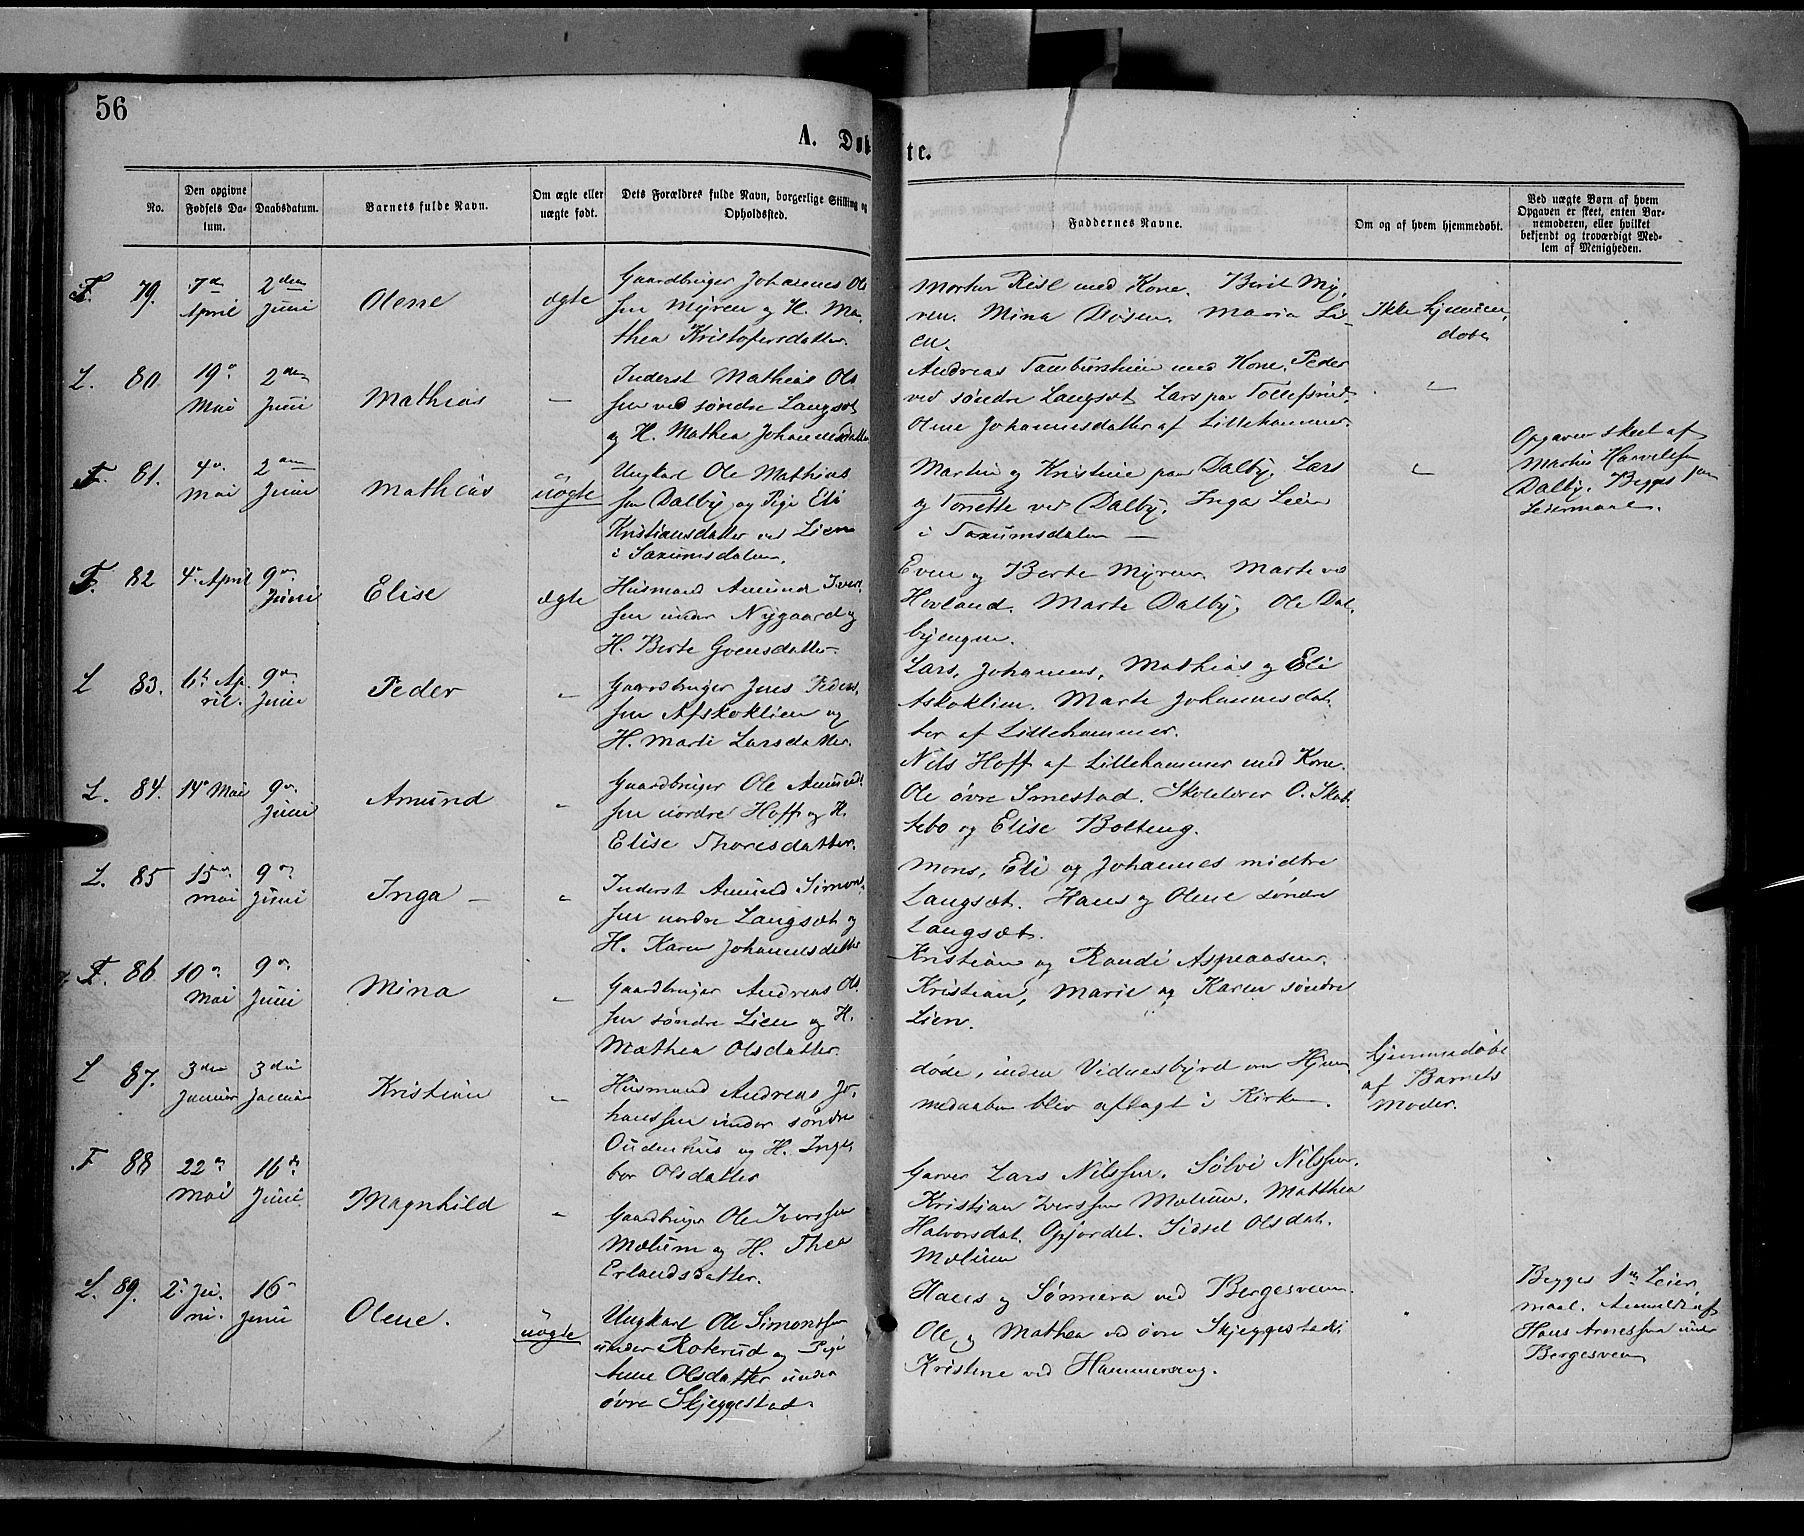 56
A. Døbte.
No.
Den opgivne Fødsels Datum.
Daabsdatum.
Barnets fulde Navn.
Om ægte eller uægte født.
Dets Forældres fulde Navn, borgerlige Stilling og Opholdssted.
Faddernes Navne.
Om og af hvem hjemmedøbt.
Ved uægte Børn af hvem Opgaven er skeet, enten Barnemoderen, eller hvilket bekjendt og troværdigt Medlem af Menigheden.
F. 79. 7de April 2den Juni Olene ægte
Gaardbruger Johannes Ol
sen Myren og H. Ma-
thea Kristofersdatter.
Morten Rise med Kone. Berit My-
ren. Mina Maria Li-
en.
Ikke hjemme-
døbt
L. 80. 19de Mai 2den Juni Mathias —
Inderst Mathias Ol
sen ved søndre Langsæt
og H. Mathea Johannesdatter
Andreas med Kone. Peder
ved søndre Langsæt Lars paa Tollefsrud.
Olene Johannesdatter af Lillehammer.
"
F. 81. 4de Mai 2den Juni Mathias uægte
Ungkarl Ole Mathias
sen Dalby og Pige Eli
Kristiansdatter ved Lien
i Saxumsdalen.
Martin og Kristine paa Dalby. Lars
og Tonette ved Dalby. Inga Lien
i Saxumsdalen —
"
Opgaven skeet af
Martin
Dalby. Begges 1ste
Leiermaal.
F. 82 4de April 9de Juni Elise ægte
Husmand Amund Iver-
sen under Nygaard og
H. Berte Evensdatter
Even og Berte Myren. Marte ved
Hovland. Marte Dalby. Ole Dal-
byengen.
L 83. 6te April. 9de Juni Peder "
Gaardbruger Jens Peder-
sen Afskoklien og
H. Marte Larsdatter.
Lars, Johannes, Mathias og Eli
Askoklien. Marte Johannesdat-
ter af Lillehammer.
L. 84. 14de Mai 9de Juni Amund "
Gaardbruger Ole Amund-
sen nordre Hoff og H.
Elise Thoresdatter.
Nils Hoff af Lillehammer med Kone.
Ole øvre Smestad. Skolelærer O. Skat-
tebo og Elise Bolteng.
L. 85 15de Mai 9de Juni Inga — "
Inderst Amund Simon-
sen nordre Langsæt og
H. Karen Johannesdatter
Mons, Eli og Johannes midtre
Langsæt. Hans og Olene søndre
Langsæt.
F. 86 10de Mai 9de Juni Mina "
Gaardbruger Andreas Ol-
sen søndre Lien og H.
Mathea Olsdatter.
Kristian og Randi Aspeaasen.
Kristian, Marie og Karen søndre
Lien.
L 87. 3die Januar 3die Januar Kristian "
Husmand Andreas Jo-
hanssen under søndre
og H. Inge-
bor Olsdatter
døde, inden Vidnesbyrd om Hjem-
medaaben blev aflagt i Kirken.
hjemmedøbt
af Barnets
Moder.
F 88 22de Mai 16de Juni Magnhild "
Gaardbruger Ole Iverssen
Mælum og H. Thea
Erlandsdatter.
Garver Lars Nilssen. Sølvi Nilssen.
Kristian Iverssen Mælum. Matthea
Halvorsdat. Opjordet. Sidsel Olsdat.
Mælum
L. 89. 2de Juni. 16de Juni Olene. uægte
Ungkarl Ole Simonssen
under Roterud og Pige
Anne Olsdatter under
øvre Skjeggestad.
Hans og ved Bergesveen.
Ole og Mathea ved øvre Skjeggestad.
Kristine ved Hammereng.
Begges 1ste Leier-
maal. Anmeldt af
Hans Arnessen under
Bergesveen